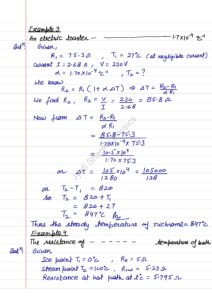 Example 3
An electric toaster - - - - - 1.7×10⁻⁴ °C⁻¹
Solⁿ. Given,
R₁ = 75.3 Ω, T₁ = 27°C (at negligible current)
Current I = 2.68 A, V = 230V
α = 1.70×10⁻⁴ °C⁻¹, T₂ = ?
We know
R₂ = R₁ (1 + α ΔT) ⇒ ΔT = R₂-R₁ / αR₁
We find R₂, R₂ = V/I = 230/2.68 = 85.8 Ω
Now from ΔT = R₂-R₁ / αR₁
= 85.8-75.3 / 1.70×10⁻⁴×75.3
= 10.5×10⁴ / 1.70×75.3
or ΔT = 105/1280 ×10⁴ = 105000/128
or T₂-T₁ = 820
So T₂ = 820 + T₁
= 820 + 27
T₂ = 847°C
Thus the steady temperature of nichrome = 847°C
Example 4
The resistance of - - - - - temperature of bath
Solⁿ. Given
Ice point T₁ = 0°C, R₀ = 5 Ω
Steam point T₂ = 100°C, R₁₀₀ = 5.23 Ω
Resistance at hot bath at t°C = 5.795 Ω